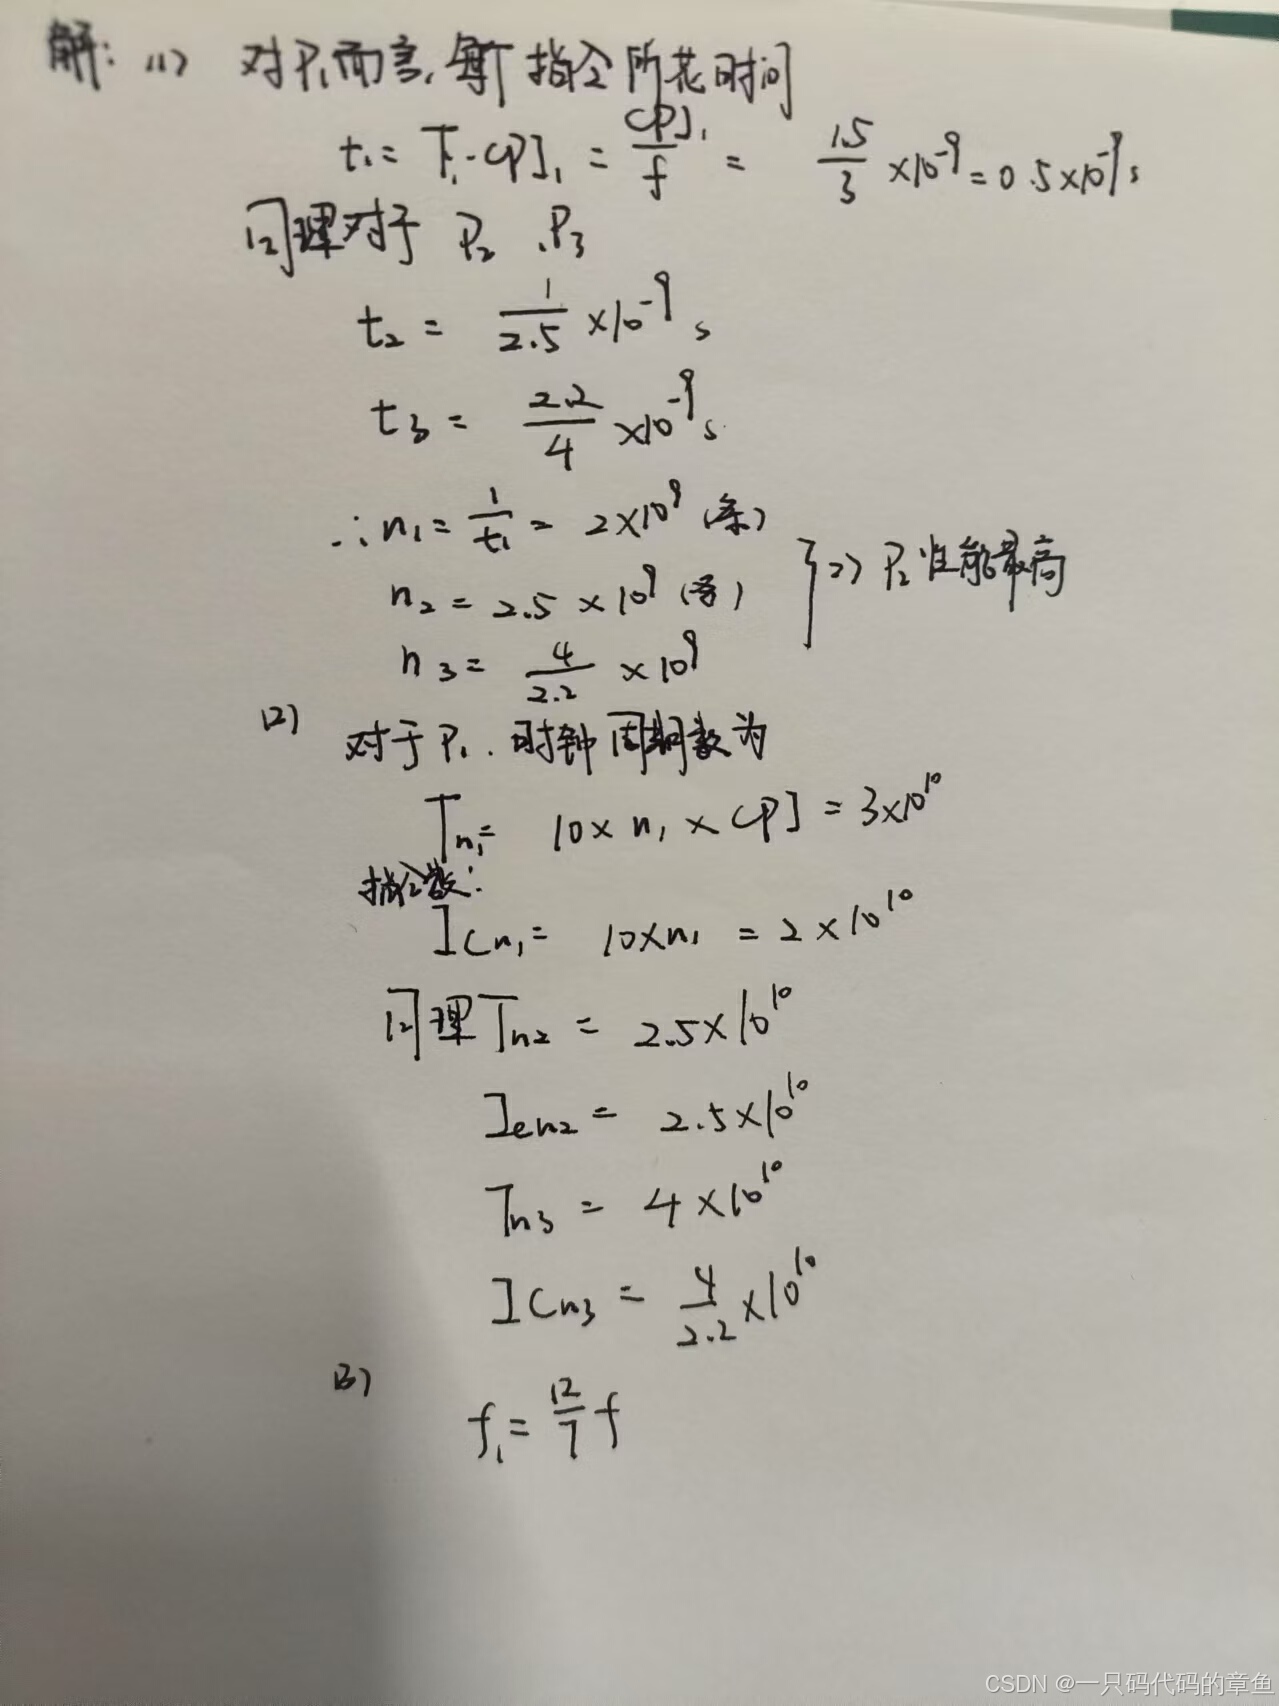 解: (1) 对P₁而言, 每个指令所花时间
t₁ = T₁·CPI₁ = CPI₁/f = 1.5/3 ×10⁻⁹ = 0.5×10⁻⁹s
同理对于 P₂、P₃
t₂ = 1/2.5 ×10⁻⁹ s
t₃ = 2.2/4 ×10⁻⁹ s
∴ n₁ = 1/t₁ = 2×10⁹ (条)
n₂ = 2.5×10⁹ (条) } => P₂性能最高
n₃ = 4/2.2 ×10⁹
(2) 对于P₁、时钟周期数为
Tn₁ = 10×n₁×CPI = 3×10¹⁰
指令数:
ICn₁ = 10×n₁ = 2×10¹⁰
同理 Tn₂ = 2.5×10¹⁰
Icn₂ = 2.5×10¹⁰
Tn₃ = 4×10¹⁰
ICn₃ = 4/2.2 ×10¹⁰
(3) f₁ = 12/7 f
CSDN @一只码代码的章鱼